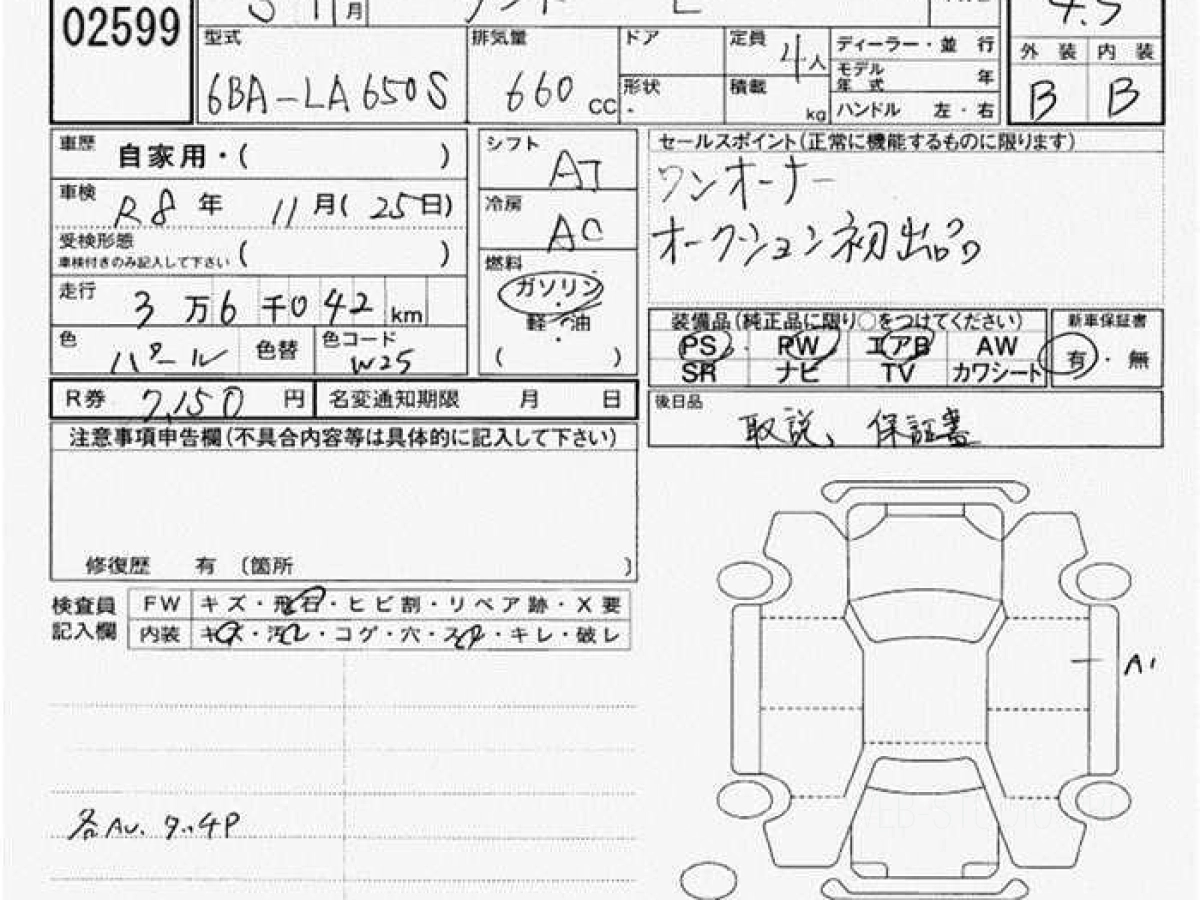 02599
月
外装 内装
B B
型式 6BA-LA650S
排気量 660 CC
ドア
形状
定員 4人
積載 kg
ディーラー・並行
モデル年式 年
ハンドル 左・右
車歴 自家用・( )
車検 R8年 11月(25日)
受検形態 ( )
車検付きのみ記入して下さい
走行 3万6千042km
色 パール 色替
色コード W25
シフト AT
冷房 AC
燃料
ガソリン
・
軽油
・
( )
セールスポイント(正常に機能するものに限ります)
ワンオーナー
オークション初出品
装備品(純正品に限り○をつけてください)
PS・PW エアB AW
SR ナビ TV カワシート
新車保証書
有・無
R券 7,150円
名変通知期限 月 日
後日品
取説、保証書
注意事項申告欄(不具合内容等は具体的に記入して下さい)
修復歴 有 〔箇所 〕
検査員記入欄
FW キズ・飛石・ヒビ割・リペア跡・X要
内装 キズ・汚レ・コゲ・穴・スレ・キレ・破レ
A1
各AU.